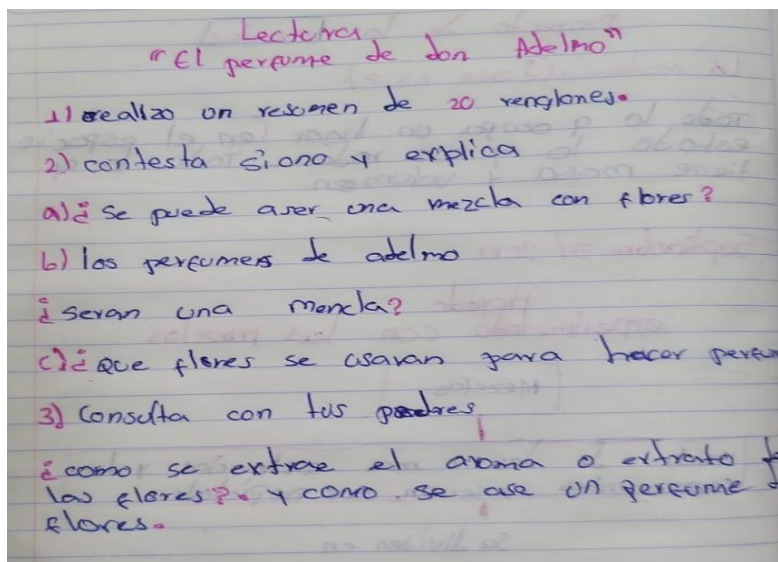 Lectura
"El perfume de don Adelmo"
1) realizo un resumen de 20 renglones.
2) contesta si o no y explica
a) ¿ se puede aser una mezcla con flores?
b) los perfumes de adelmo
¿ seran una mencla?
c) ¿ Que flores se usaran para hacer perfum
3) Consulta con tus padres
¿ como se extrae el aroma o extrato
las flores?. y como se ase un perfume
flores.